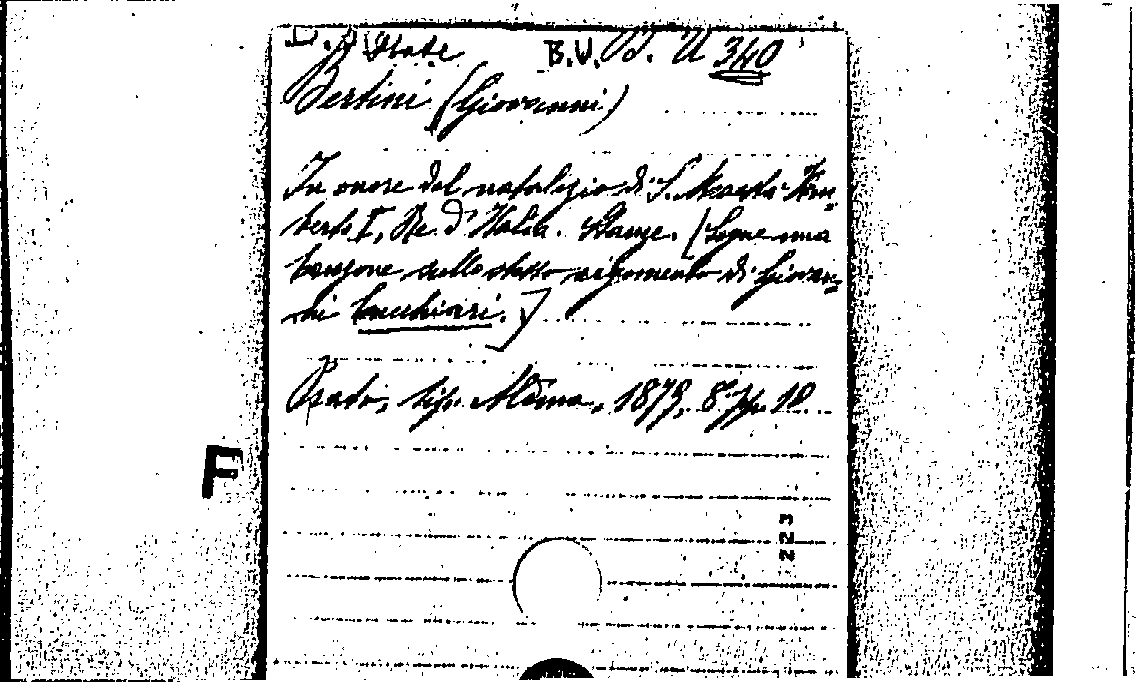 B.U. 340
Bertini (Giovanni)
In onore del natalizio di S. Maestà Um=
berto I, Re d'Italia. Stanze. (Segue una
canzone sullo stesso argomento di Giovan=
ni Cacchiari.)
Prato, tip. Aldina, 1879, 8° pp. 12
F
322